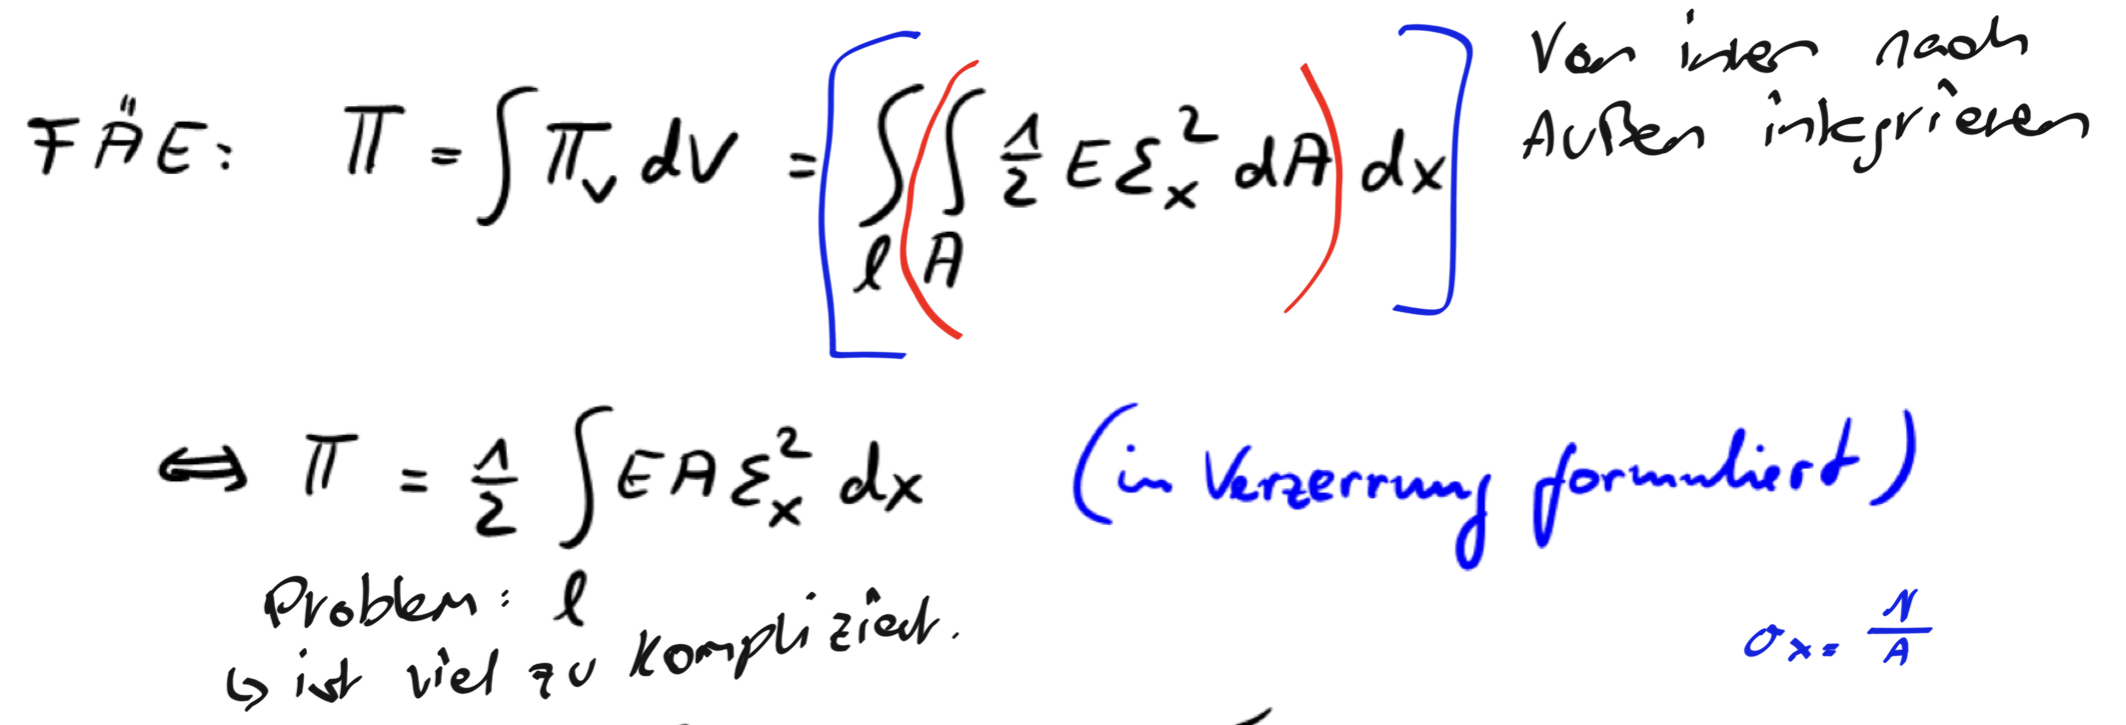 FÄE: Π = ∫ Π_v dV = [ ∫_l ( ∫_A 1/2 E ε_x^2 dA ) dx ]
Von innen nach
Außen integrieren
⇔ Π = 1/2 ∫_l E A ε_x^2 dx (in Verzerrung formuliert)
Problem:
↳ ist viel zu kompliziert.
σ_x = N/A